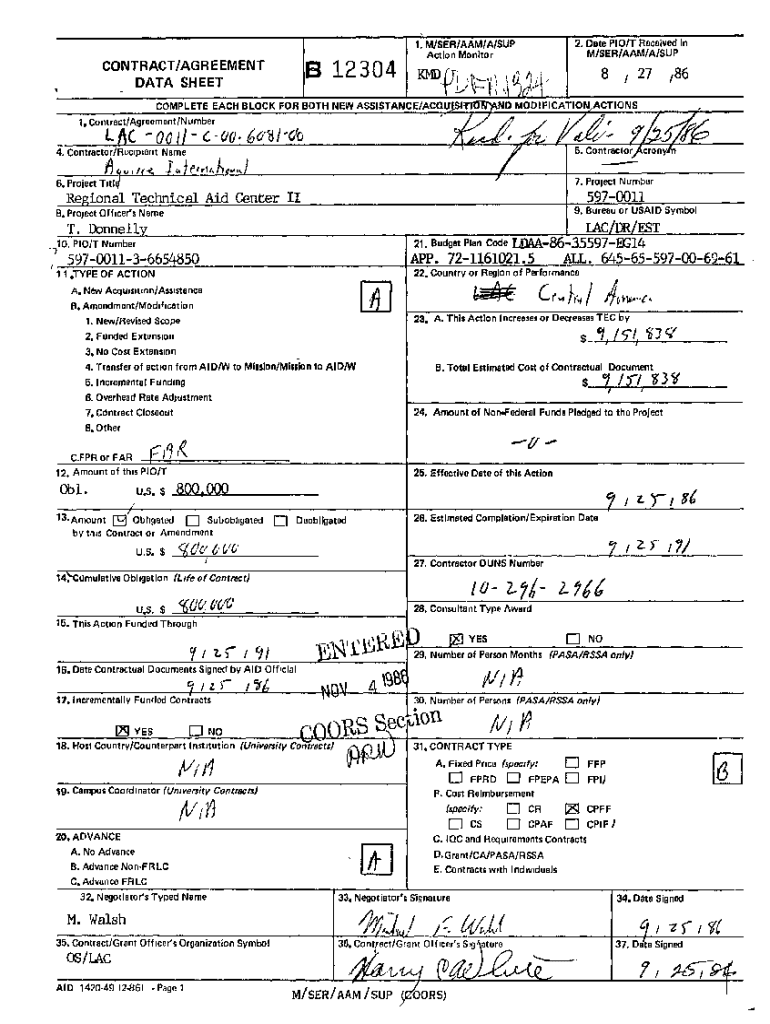 CONTRACT/AGREEMENT
DATA SHEET
B 12304
1. M/SER/AAM/A/SUP
Action Monitor
KMD
2. Date PIO/T Received in
M/SER/AAM/A/SUP
8 , 27 , 86
COMPLETE EACH BLOCK FOR BOTH NEW ASSISTANCE/ACQUISITION AND MODIFICATION ACTIONS
1. Contract/Agreement/Number
LAC-0011-C-00-6081-00
9/25/86
4. Contractor/Recipient Name
Aguirre International
5. Contractor Acronym
6. Project Title
Regional Technical Aid Center II
7. Project Number
597-0011
8. Project Officer's Name
T. Donnelly
9. Bureau or USAID Symbol
LAC/DR/EST
10. PIO/T Number
597-0011-3-6654850
21. Budget Plan Code LDAA-86-35597-EG14
APP. 72-1161021.5 ALL. 645-65-597-00-69-61
11. TYPE OF ACTION
A. New Acquisition/Assistance
B. Amendment/Modification
1. New/Revised Scope
2. Funded Extension
3. No Cost Extension
4. Transfer of action from AID/W to Mission/Mission to AID/W
5. Incremental Funding
6. Overhead Rate Adjustment
7. Contract Closeout
8. Other
A
C. FPR or FAR FAR
22. Country or Region of Performance
LAC Central America
23. A. This Action Increases or Decreases TEC by
$ 9,151,838
B. Total Estimated Cost of Contractual Document
$ 9,151,838
24. Amount of Non-Federal Funds Pledged to the Project
-0-
12. Amount of this PIO/T
Obl. U.S. $ 800,000
25. Effective Date of this Action
9 , 25 , 86
13. Amount Obligated Subobligated Deobligated
by this Contract or Amendment
U.S. $ 800,000
26. Estimated Completion/Expiration Date
9 , 25 , 91
27. Contractor DUNS Number
10-296-2966
14. Cumulative Obligation (Life of Contract)
U.S. $ 800,000
28. Consultant Type Award
YES NO
15. This Action Funded Through
9 , 25 , 91
ENTERED
NOV 4 1986
COORS Section
29. Number of Person Months (PASA/RSSA only)
N/A
16. Date Contractual Documents Signed by AID Official
9 , 25 , 86
17. Incrementally Funded Contracts
YES NO
30. Number of Persons (PASA/RSSA only)
N/A
18. Host Country/Counterpart Institution (University Contracts)
N/A
31. CONTRACT TYPE
A. Fixed Price (specify: FFP
FPRD FPEPA FPI)
B
19. Campus Coordinator (University Contracts)
N/A
P. Cost Reimbursement
(specify: CR CPFF
CS CPAF CPIF)
C. IQC and Requirements Contracts
D. Grant/CA/PASA/RSSA
E. Contracts with Individuals
20. ADVANCE
A. No Advance
B. Advance Non-FRLC
C. Advance FRLC
A
32. Negotiator's Typed Name
M. Walsh
33. Negotiator's Signature
34. Date Signed
9 , 25 , 86
35. Contract/Grant Officer's Organization Symbol
OS/LAC
36. Contract/Grant Officer's Signature
37. Date Signed
9, 25, 86
AID 1420-49 (2-86) - Page 1
M/SER/AAM/SUP (COORS)